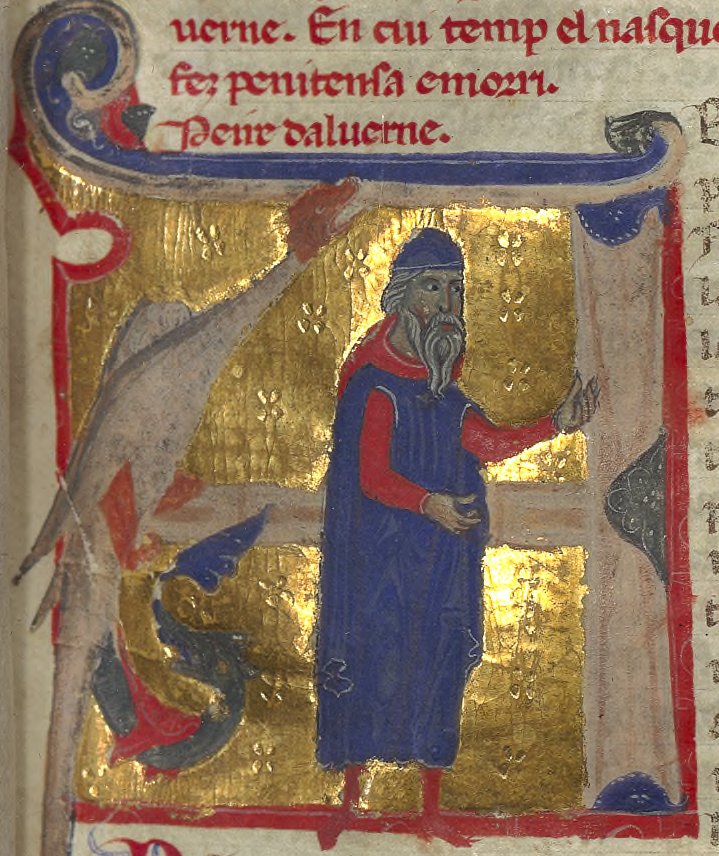 uerne. En cui temp el nasque
fez penitensa emorri.
Peire daluerne.